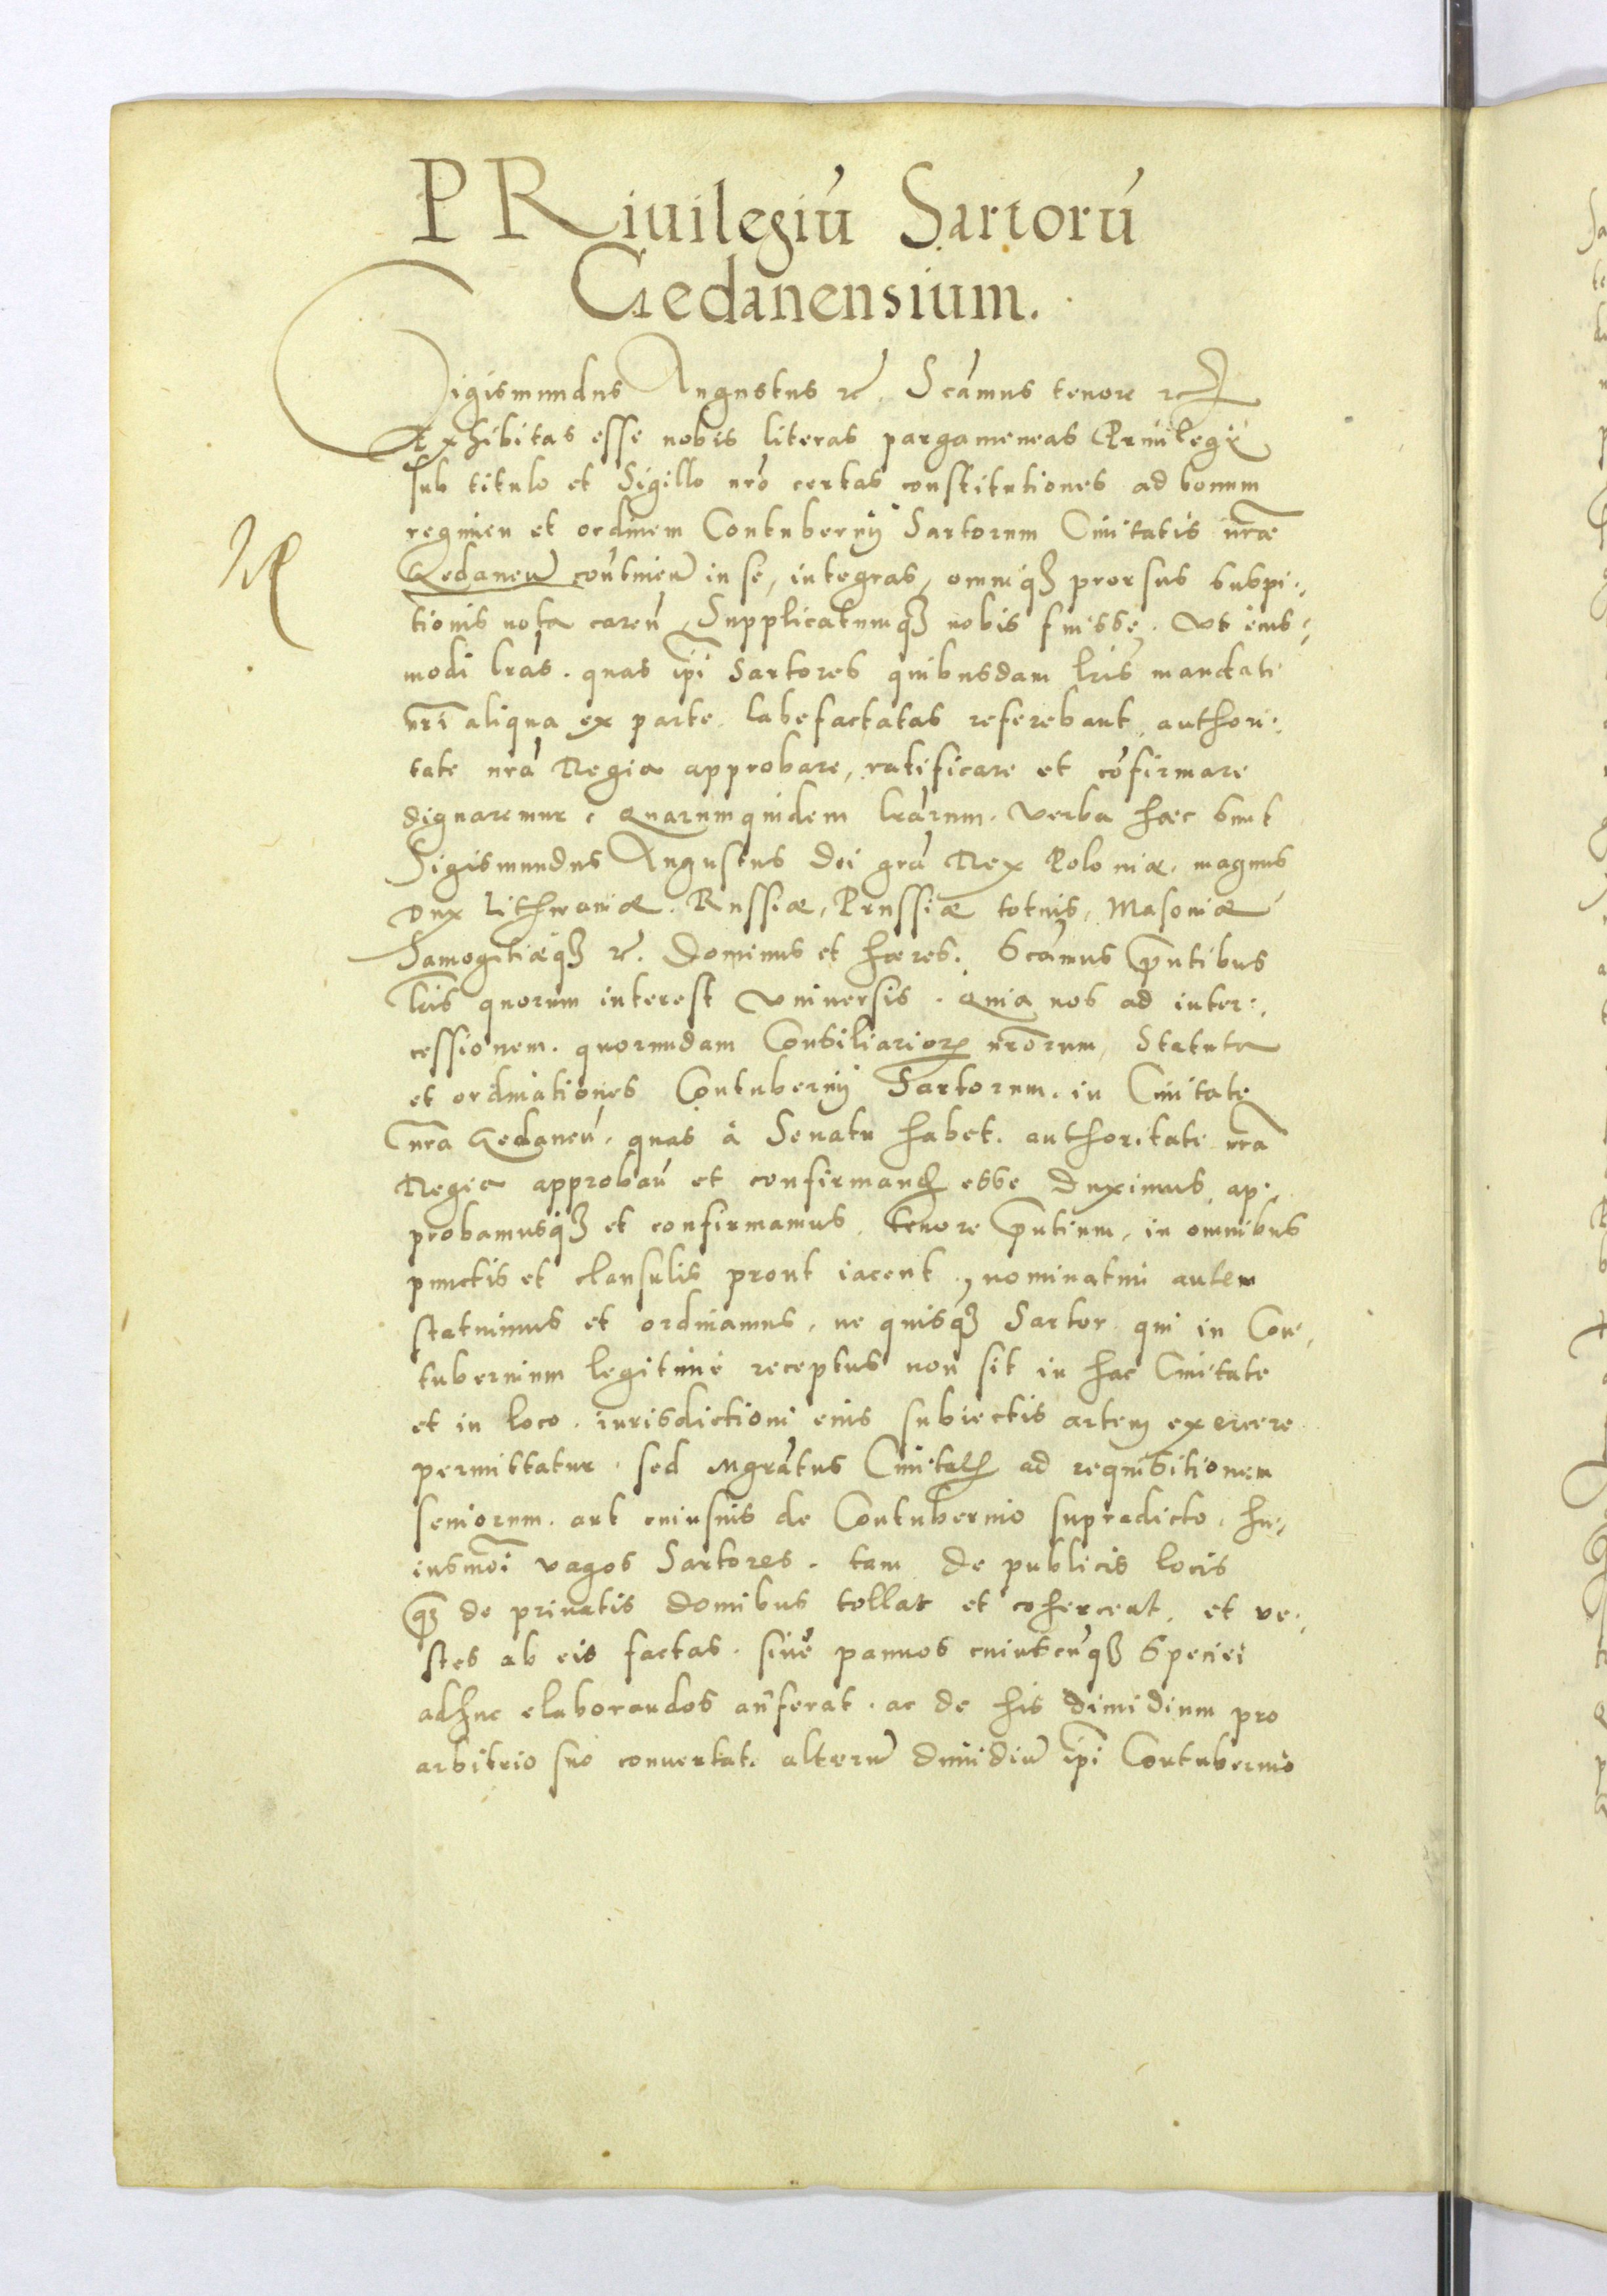 PRiuilegiú Sartorú
Gedanensium.
Sigismundus Augustus rc̃. Scāmus tenore rc̃
Exhibitas esse nobis literas pargameneas Priuilegij
sub titulo et Sigillo nr̃o certas constitutiones ad bonum
regimen et ordinem Contubernij Sartorum Ciuitatis nr̃æ
Gedaneñ contineñ in se, integras, omniq̃ꝫ prorsus suspi:,
tionis nota careñ, Supplicatumq̃ꝫ nobis fuisse. Vt eius:,
modi lr̃as. quas ip̃i Sartores quibusdam lr̃is mandati
nr̃i aliqua ex parte labefactatas referebant, authori:,
tate nr̃a Regia approbare, ratificare et cõfirmare
dignaremur: Quarumquidem lr̃arum. verba hæc sunt
Sigismundus Augustus Dei gr̃a Rex Poloniæ, magnus
Dux Lithuaniæ. Russiæ, Prussiæ totius, Masouiæ
Samogitiæq̃ꝫ rc̃. Dominus et hæres. Scāmus p̃ntibus
lr̃is quorum interest vniuersis. Quia nos ad inter:,
cessionem. quorundam Consiliarioꝝ nr̃orum, Statuta
et ordinationes Contubernij Sartorum. in Ciuitate
nr̃a Gedaneñ. quas à Senatu habet. authoritate nr̃a
Regia approbañ et confirmanđ esse duximus, ap:,
probamusq̃ꝫ et confirmamus. tenore p̃ntium, in omnibus
punctis et clausulis prout iacent, nominatim autem
statuimus et ordinamus, ne quisq̃ꝫ Sartor qui in Con:,
tubernium legitimè receptus non sit in hac Ciuitate
et in loco. iurisdictioni eius subiectis artem exercere
permittatur. sed Mgrātus Ciuitatꝭ ad requisitionem
seniorum. aut cuiusuis de Contubernio supradicto. hu:,
iusmõi vagos Sartores. tam de publicis locis
q̃ꝫ de priuatis domibus tollat et coherceat, et ve:,
stes ab eis factas. siuè pannos cuiuscũq̃ꝫ speciei
adhuc elaborandos auferat. ac de his dimidium pro
arbitrio suo conuertat. alterũ dimidiũ ip̃i Contubernio